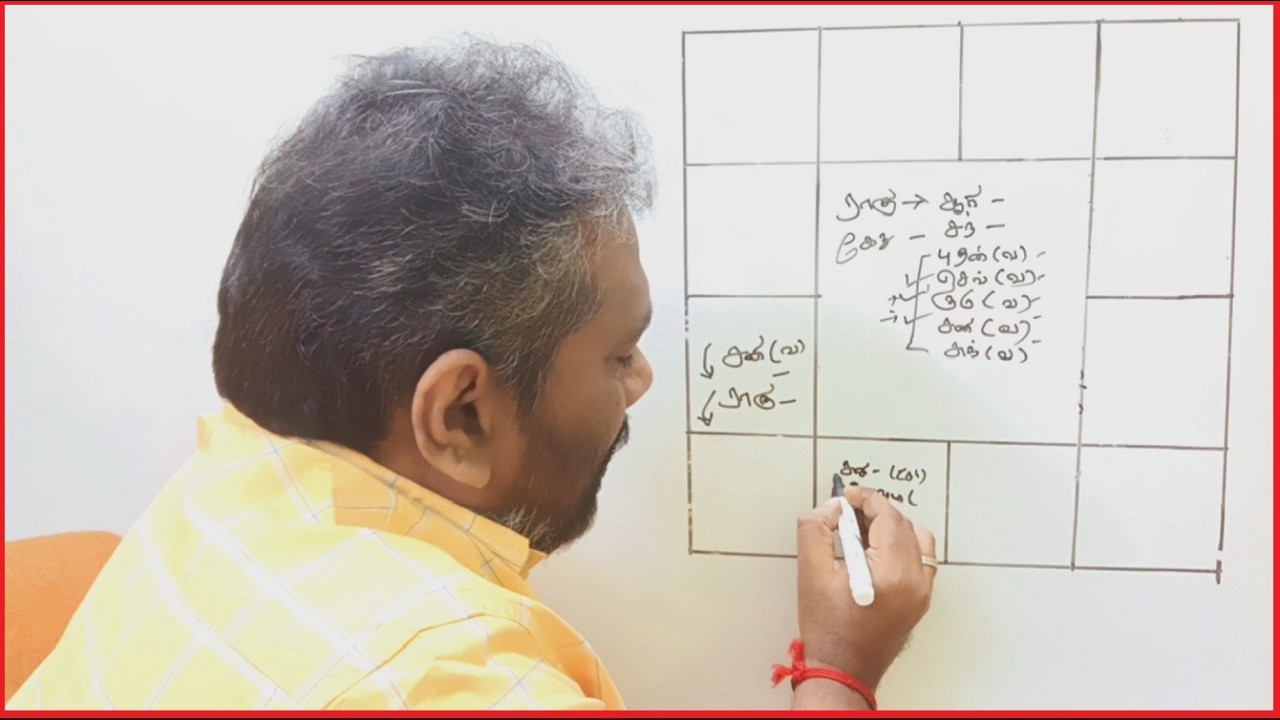 ராகு → ஆதி -
கேது - சந் -
புதன் (வ) -
செவ் (வ) -
குரு (வ) -
சனி (வ) -
சுக் (வ)
சனி (வ)
ராகு -